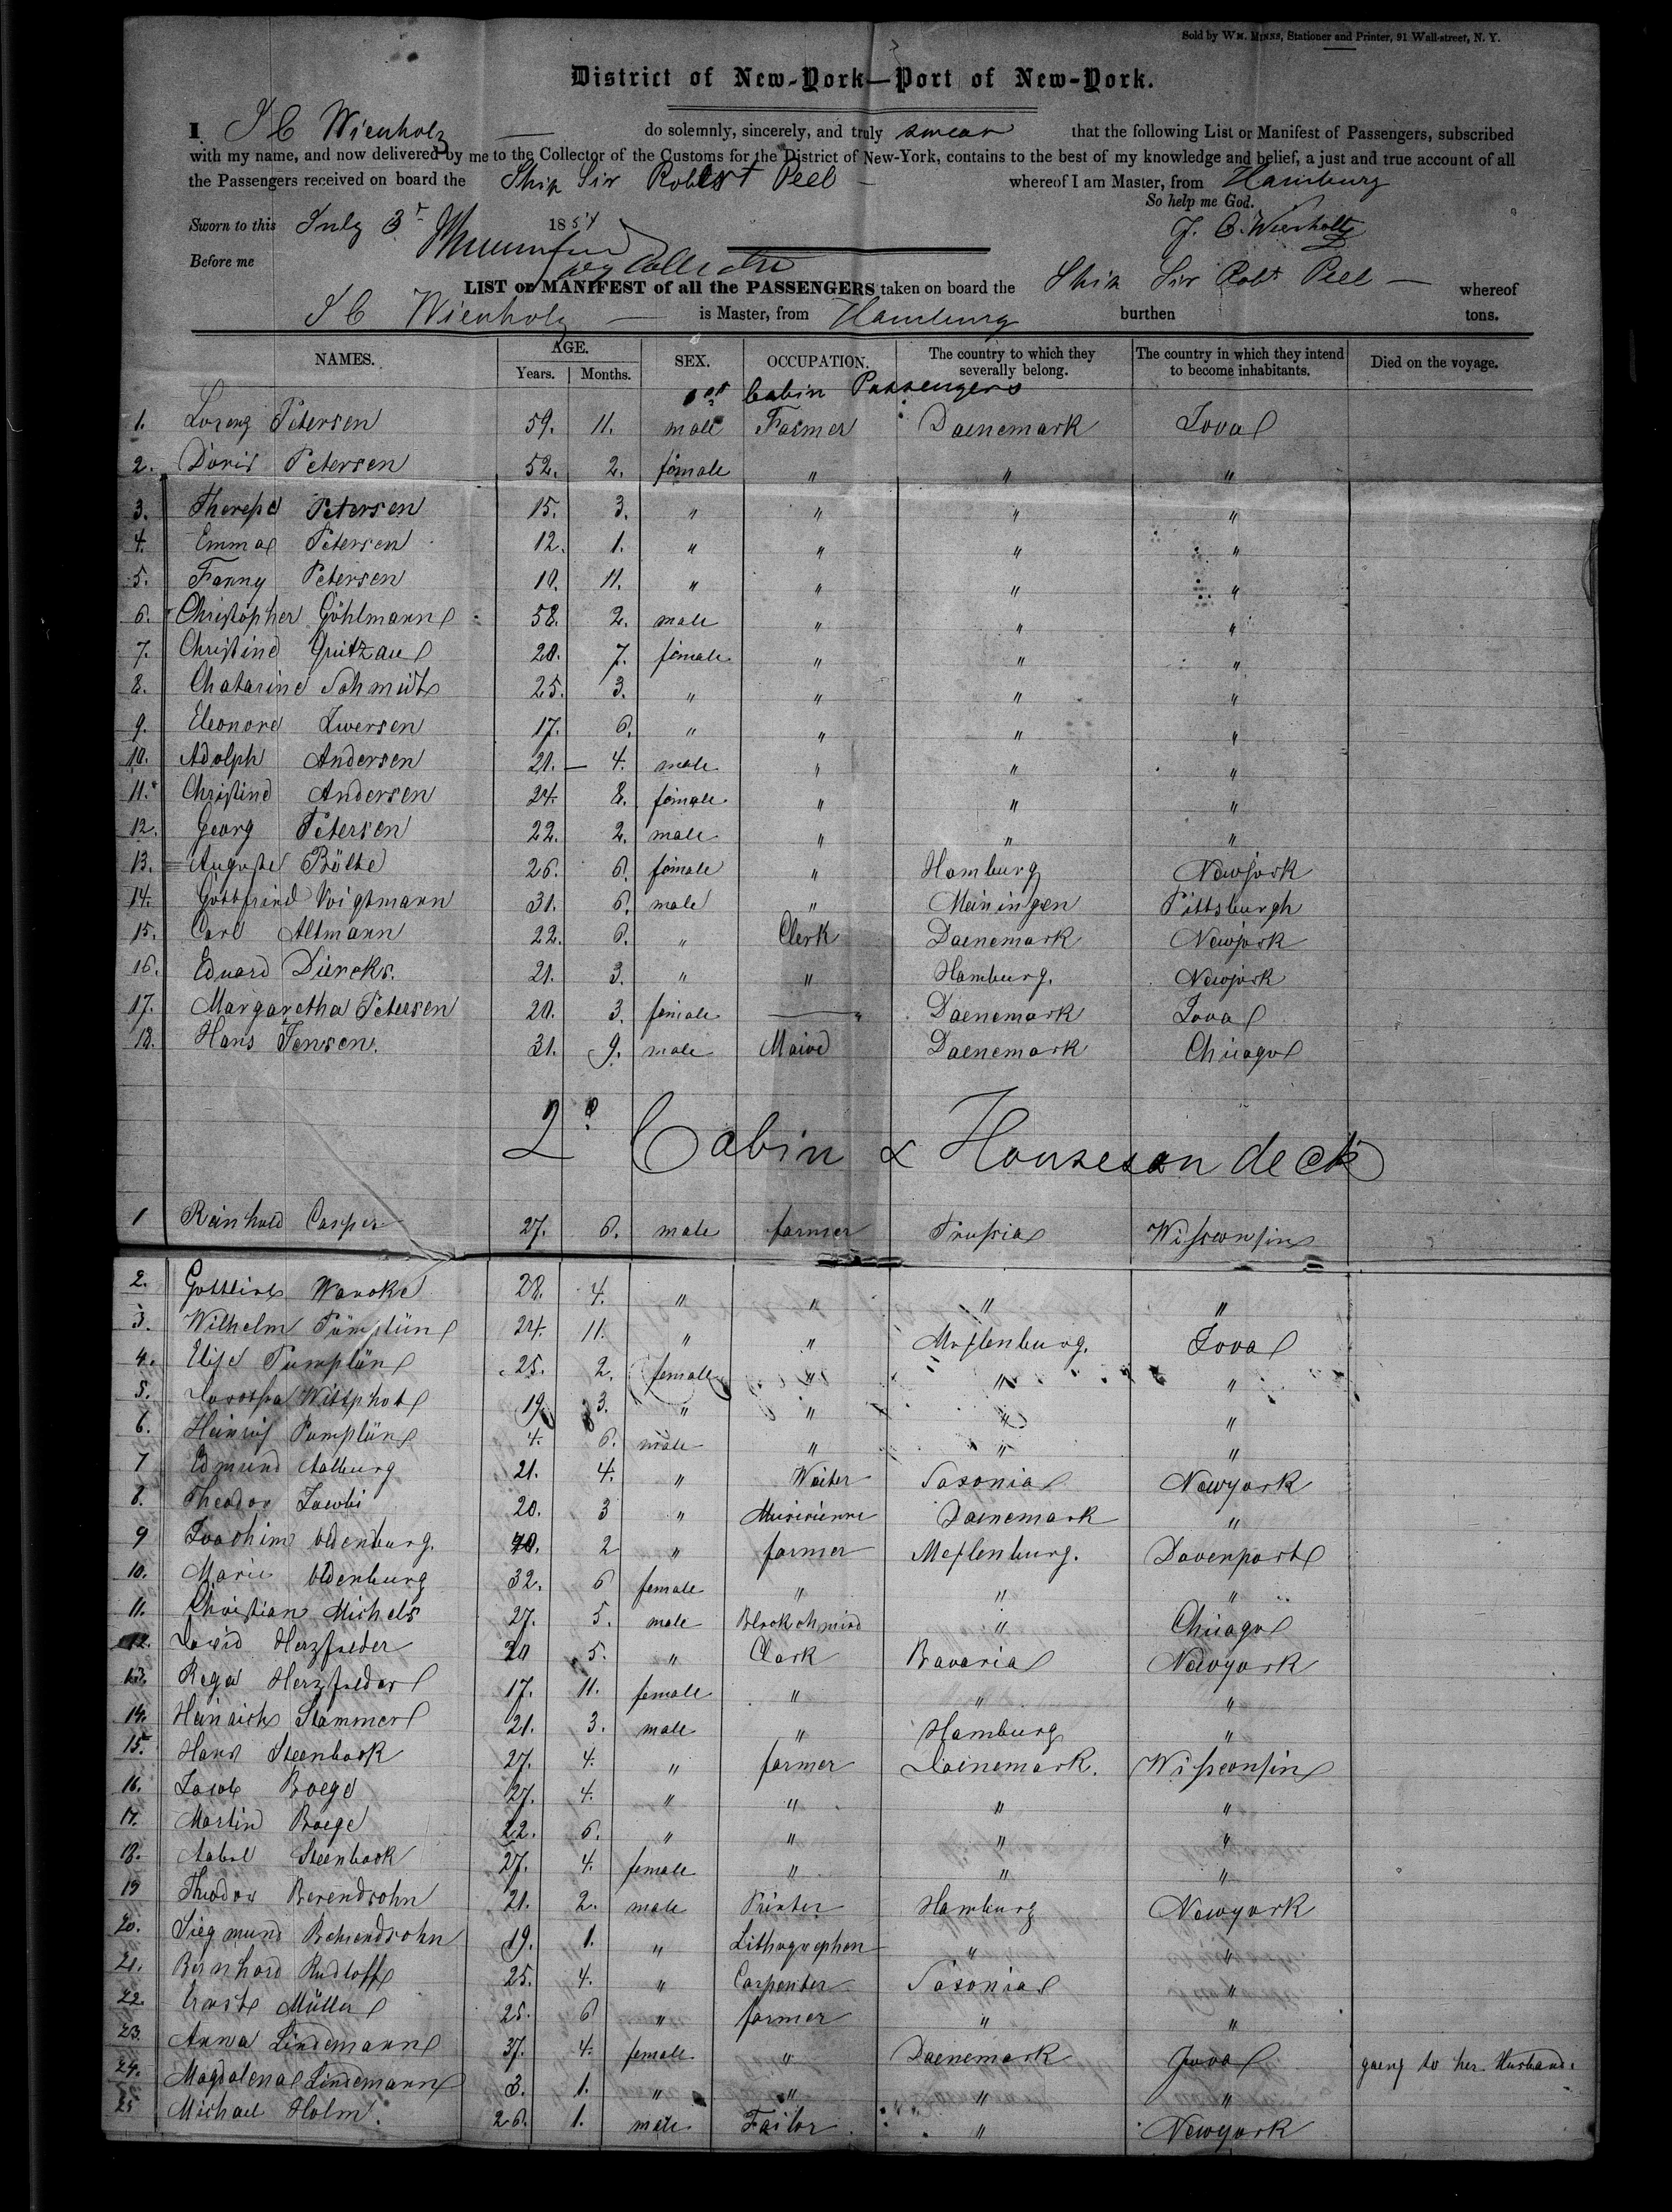 Sold by WM. MINNS, Stationer and Printer, 91 Wall-street, N. Y.
District of New-York—Port of New-York.
I J C Wienholz do solemnly, sincerely, and truly swear that the following List or Manifest of Passengers, subscribed
with my name, and now delivered by me to the Collector of the Customs for the District of New-York, contains to the best of my knowledge and belief, a just and true account of all
the Passengers received on board the Ship Sir Robert Peel whereof I am Master, from Hamburg
So help me God.
Sworn to this July 3 1854 J. C. Wienholtz
Before me
LIST or MANIFEST of all the PASSENGERS taken on board the Ship Sir Robt Peel whereof
J C Wienholz is Master, from Hamburg burthen tons.
NAMES. AGE. Years. Months. SEX. OCCUPATION. The country to which they severally belong. The country in which they intend to become inhabitants. Died on the voyage.
1st Cabin Passengers
1. Lorenz Petersen 59. 11. male Farmer Daenemark Iova
2. Doris Petersen 52. 2. female " " "
3. Therese Petersen 15. 3. " " " "
4. Emma Petersen 12. 1. " " " "
5. Fanny Petersen 10. 11. " " " "
6. Christopher Göhlmann 58. 2. male " " "
7. Christine Gritzau 20. 7. female " " "
8. Chatarine Schmidt 25. 3. " " " "
9. Eleonore Iwersen 17. 6. " " " "
10. Adolph Andersen 21. 4. male " " "
11. Christine Andersen 24. 8. female " " "
12. Georg Petersen 22. 2. male " " "
13. Auguste Bölte 26. 6. female " Hamburg Newjork
14. Gottfried Voigtmann 31. 6. male " Meiningen Pittsburgh
15. Carl Altmann 22. 6. " Clerk Daenemark Newjork
16. Eduard Diercks. 21. 3. " " Hamburg. Newjork
17. Margaretha Petersen 20. 3. female " Daenemark Iova
18. Hans Jensen. 31. 9. male Maiod Daenemark Chicago
2e Cabin & Houses on deck
1 Reinhold Casper 27. 6. male farmer Prussia Wissconsin
2. Gottlieb Warnke 28. 4. " " " "
3. Wilhelm Pumplün 24. 11. " " Meklenburg. Iova
4. Elise Pumplün 25. 2. female " " "
5. 19 3. " " " "
6. Heinrich Pumplün 4. 6. male " " "
7 Edmund Aalburg 21. 4. " Waiter Saxonia Newyork
8. Theodor Jacobi 20. 3 " Musicienne Daenemark "
9 Joachim Oldenburg. 40. 2 " farmer Meklenburg. Davenport
10. Marie Oldenburg 32. 6 female " " "
11. Christian Michels 27. 5. male Blackchmied " Chicago
12. David Herzfelder 20 5. " Clark Bavaria Newyork
13. Rega Herzfelder 17. 11. female " " "
14. Heinrich Stammer 21. 3. male " Hamburg "
15. Hans Steenbock 27. 4. " farmer Daenemark. Wissconsin
16. Jacob Boege 27. 4. " " " "
17. Martin Boege 22. 6. " " " "
18. Aabel Steenbock 27. 4. female " " "
19 Theodor Berendsohn 21. 2. male Printer Hamburg Newyork
20. Siegmund Behrendsohn 19. 1. " Lithographen " "
21. Bernhard Rudloff 25. 4. " Carpenter Saxonia "
22. Ernst Müller 25. 6 " farmer " "
23. Anna Lindemann 37. 4. female " Daenemark Iova goeng to her Husband.
24. Magdalena Lindemann 3. 1. " " " "
25 Michael Holm. 26. 1. male Tailor " Newyork